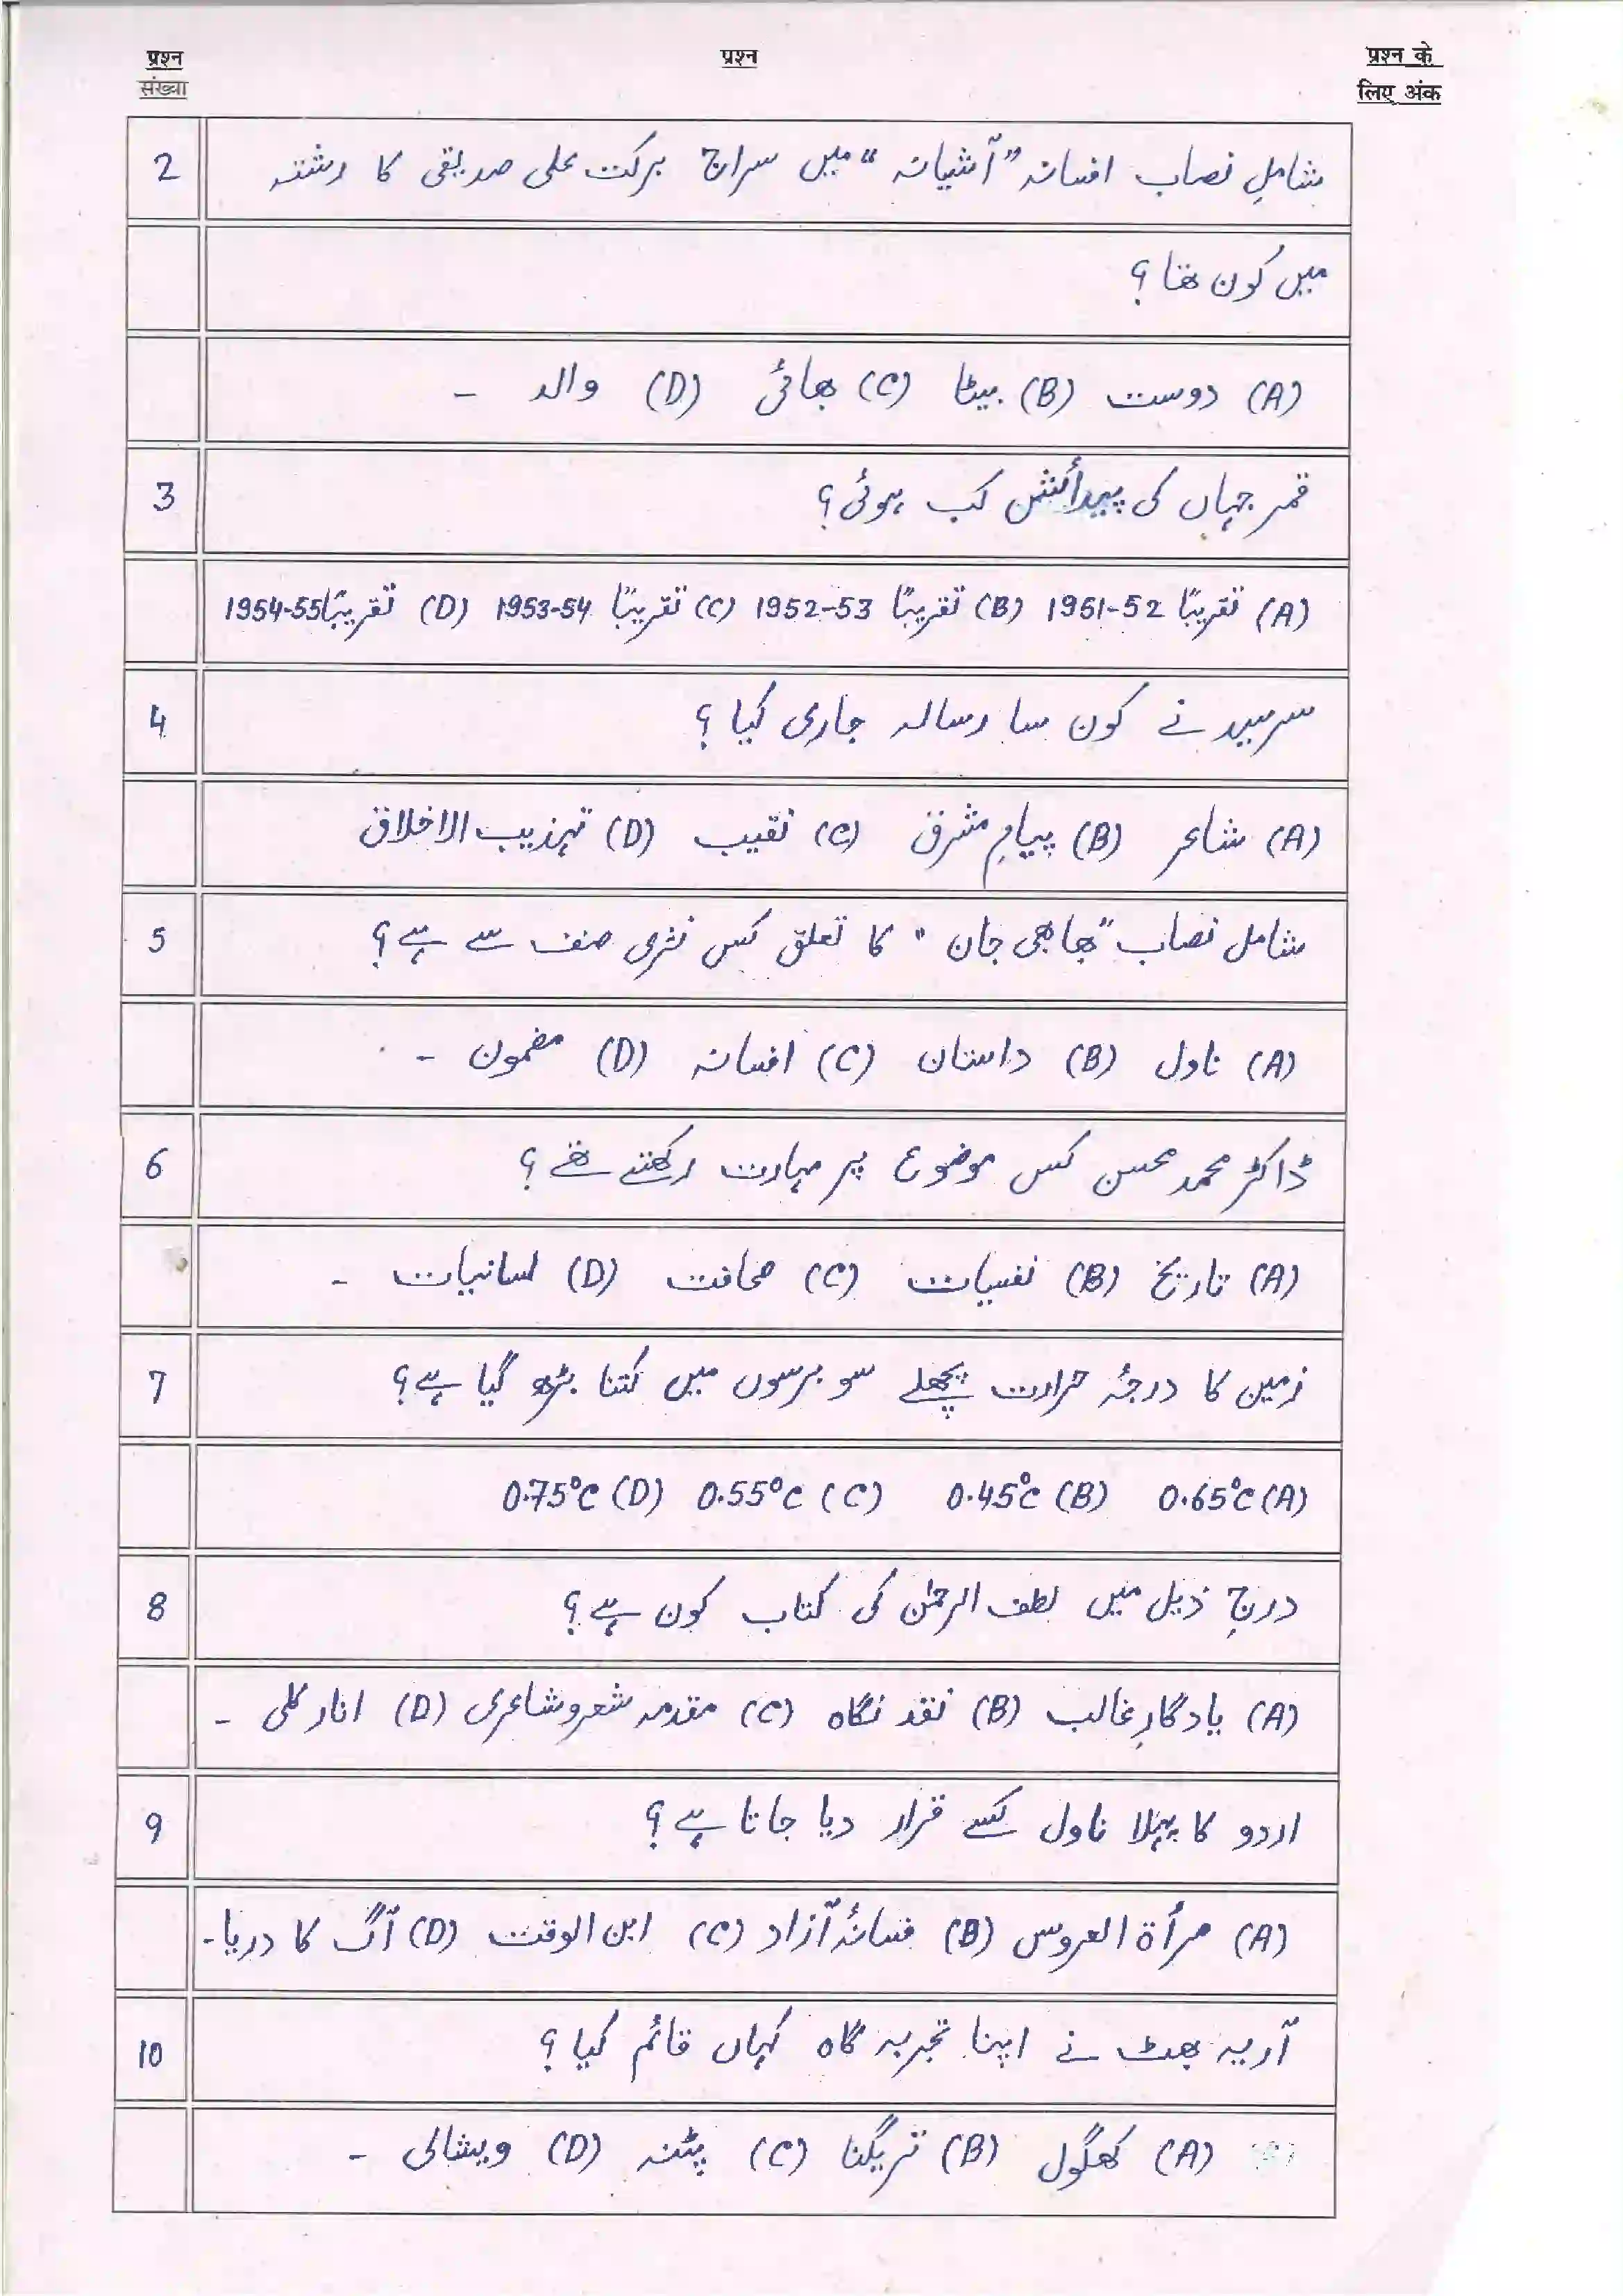 प्रश्न संख्या
प्रश्न
प्रश्न के लिए अंक
2 شاملِ نصاب افسانہ "آشیانہ" میں سراج برکت علی صدیقی کا رشتہ
میں کون تھا؟
(A) دوست (B) بیٹا (C) بھائی (D) والد ۔
3 قمر جہاں کی پیدائش کب ہوئی؟
(A) تقریباً 1951-52 (B) تقریباً 1952-53 (C) تقریباً 1953-54 (D) تقریباً 1954-55
4 سرسید نے کون سا رسالہ جاری کیا؟
(A) شاعر (B) پیامِ مشرق (C) نقیب (D) تہذیب الاخلاق
5 شامل نصاب "بھابھی جان" کا تعلق کس نثری صنف سے ہے؟
(A) ناول (B) داستان (C) افسانہ (D) مضمون ۔
6 ڈاکٹر محمد محسن کس موضوع پر مہارت رکھتے تھے؟
(A) تاریخ (B) نفسیات (C) صحافت (D) لسانیات ۔
7 زمین کا درجۂ حرارت پچھلے سو برسوں میں کتنا بڑھ گیا ہے؟
(A) 0.65°C (B) 0.45°C (C) 0.55°C (D) 0.75°C
8 درجِ ذیل میں لطف الرحمٰن کی کتاب کون ہے؟
(A) یادگارِ غالب (B) نقد نگاہ (C) مقدمہ شعر و شاعری (D) انار کلی ۔
9 اردو کا پہلا ناول کسے قرار دیا جاتا ہے؟
(A) مرأة العروس (B) فسانۂ آزاد (C) ابن الوقت (D) آگ کا دریا۔
10 آریہ بھٹ نے اپنا تجربہ گاہ کہاں قائم کیا؟
(A) کھگول (B) تریگنا (C) پٹنہ (D) ویشالی ۔